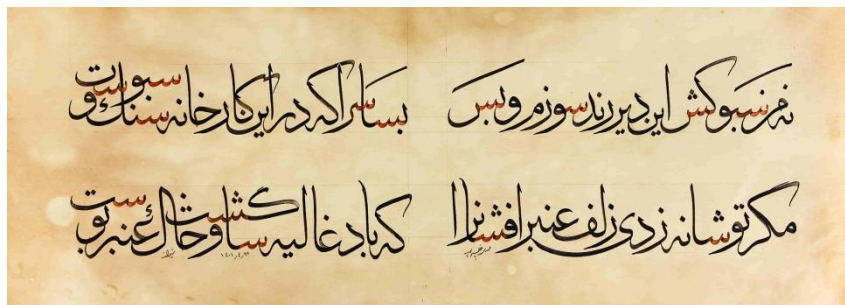 نه من سبوکش این دیر رندسوزم و بس بسا سرا که در این کارخانه سنگ و سبوست
مگر تو شانه زدی زلف عنبرافشان را که باد غالیه سا گشت و خاک عنبر بوست